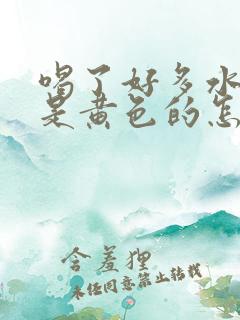 喝了好多水
是黄色的怎
含羞狸
未经同意禁止转载